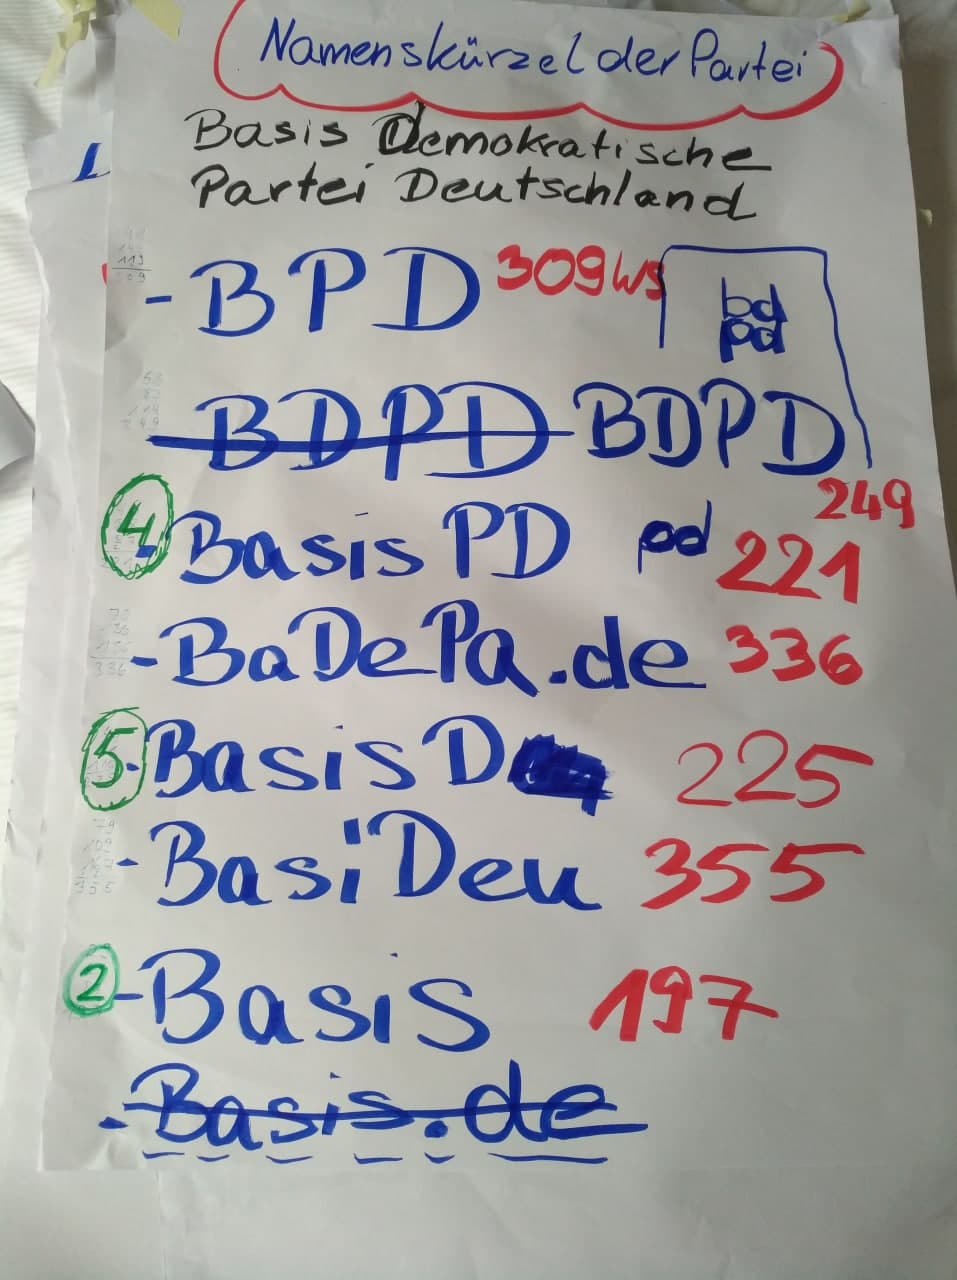 Namenskürzel der Partei
Basis Demokratische
Partei Deutschland
- BPD 309 WS
bd
pd
BDPD BDPD
249
4 - Basis PD pd 221
- BaDePa.de 336
5 - Basis D 225
- BasiDeu 355
2 - Basis 197
- Basis.de